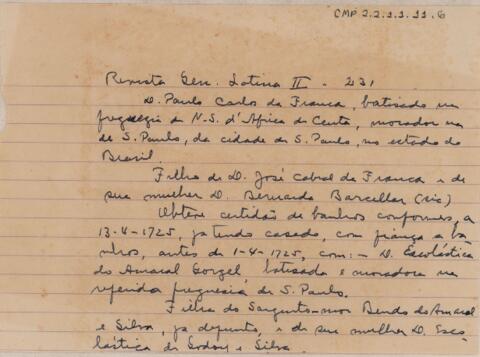 CMP 2.2.1.1.11.6
Revista Gen. Latina II - 231
D. Paulo Carlos da Franca, batisado na
freguezia de N.S. d'Africa de Ceuta, morador na
de S. Paulo, da cidade de S. Paulo, no estado do
Brasil.
Filho de D. José Cabral da Franca e de
sua mulher D. Bernarda Barcellar (sic)
Obteve certidão de banhos conformes, a
13-4-1725, ja tendo casado, com fiança a ba
nhos, antes de 1-4-1725, com:- D. Escolástica
do Amaral Gorgel batisada e moradora na
referida freguesia de S. Paulo.
Filha do Sargento-mor Bento do Amaral
e Silva, ja defunto, e de sua mulher D. Esco
lástica de Godoy e Silva.